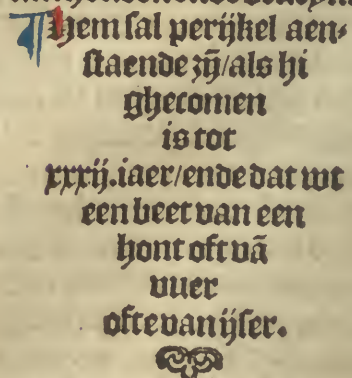 ¶ Hem sal perijkel aen⸗
staende zijn/als hi
ghecomen
is tot
xxxij.iaer/ende dat wt
een beet van een
hont oft vā
vuer
ofte van ijser.